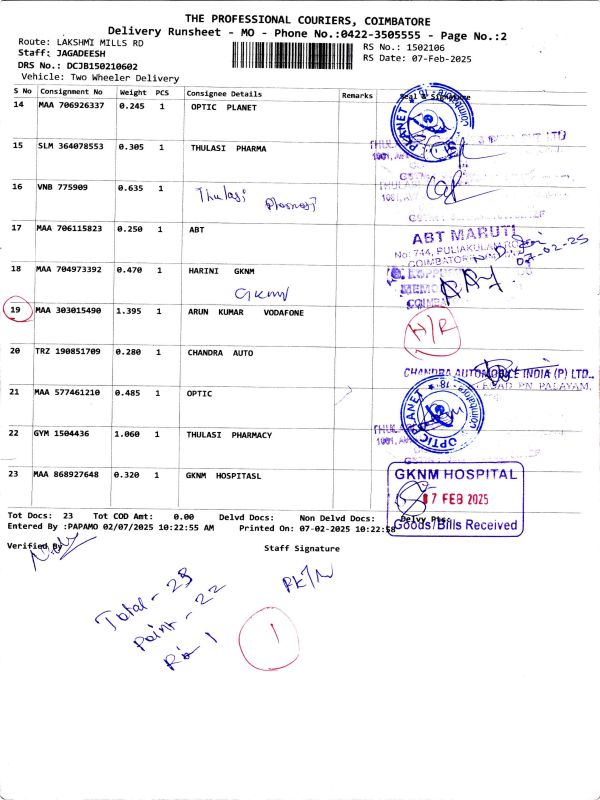 THE PROFESSIONAL COURIERS, COIMBATORE
Delivery Runsheet - MO - Phone No.:0422-3505555 - Page No.:2
Route: LAKSHMI MILLS RD
RS No.: 1502106
Staff: JAGADEESH
RS Date: 07-Feb-2025
DRS No.: DCJB150210602
Vehicle: Two Wheeler Delivery
S No Consignment No Weight PCS Consignee Details Remarks Seal & Signature
14 MAA 706926337 0.245 1 OPTIC PLANET
15 SLM 364078553 0.305 1 THULASI PHARMA
16 VNB 775909 0.635 1 Thulasi
17 MAA 706115823 0.250 1 ABT
ABT MARUTI
No: 744, PULIAKULAM RO
COIMBATOR
07-02-25
18 MAA 704973392 0.470 1 HARINI GKNM
GKNM
19 MAA 303015490 1.395 1 ARUN KUMAR VODAFONE
H/R
20 TRZ 190851709 0.280 1 CHANDRA AUTO
CHANDRA AUTOMOBILE INDIA (P) LTD.,
21 MAA 577461210 0.485 1 OPTIC
OPTIC PLANET
22 GYM 1504436 1.060 1 THULASI PHARMACY
23 MAA 868927648 0.320 1 GKNM HOSPITASL
GKNM HOSPITAL
07 FEB 2025
Goods/Bills Received
Tot Docs: 23 Tot COD Amt: 0.00 Delvd Docs: Non Delvd Docs: Delvy Pts:
Entered By :PAPAMO 02/07/2025 10:22:55 AM Printed On: 07-02-2025 10:22:58
Verified By
Staff Signature
Total - 23
Point - 22
1